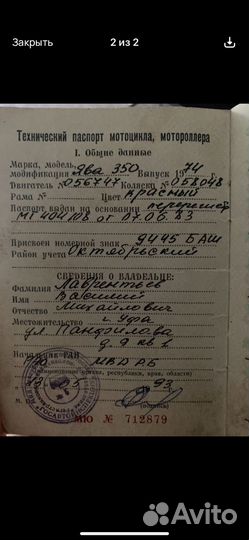 Закрыть
2 из 2
Технический паспорт мотоцикла, мотороллера
I. Общие данные
Марка, модель,
модификация Ява 350 Выпуск 1974
Двигатель № 056747 Коляска № 058048
Рама № Цвет красный
Паспорт выдан на основании
от 07.06.83
Присвоен номерной знак 9445 БАШ
Район учета Октябрьский
СВЕДЕНИЯ О ВЛАДЕЛЬЦЕ:
Фамилия Лаврентьев
Имя Василий
Отчество Михайлович
Местожительство г. Уфа
ул. Панфилова
Начальник ГАИ МВД РБ
республики, края, области)
93
М.
(подпись)
МЮ № 712879
Avito